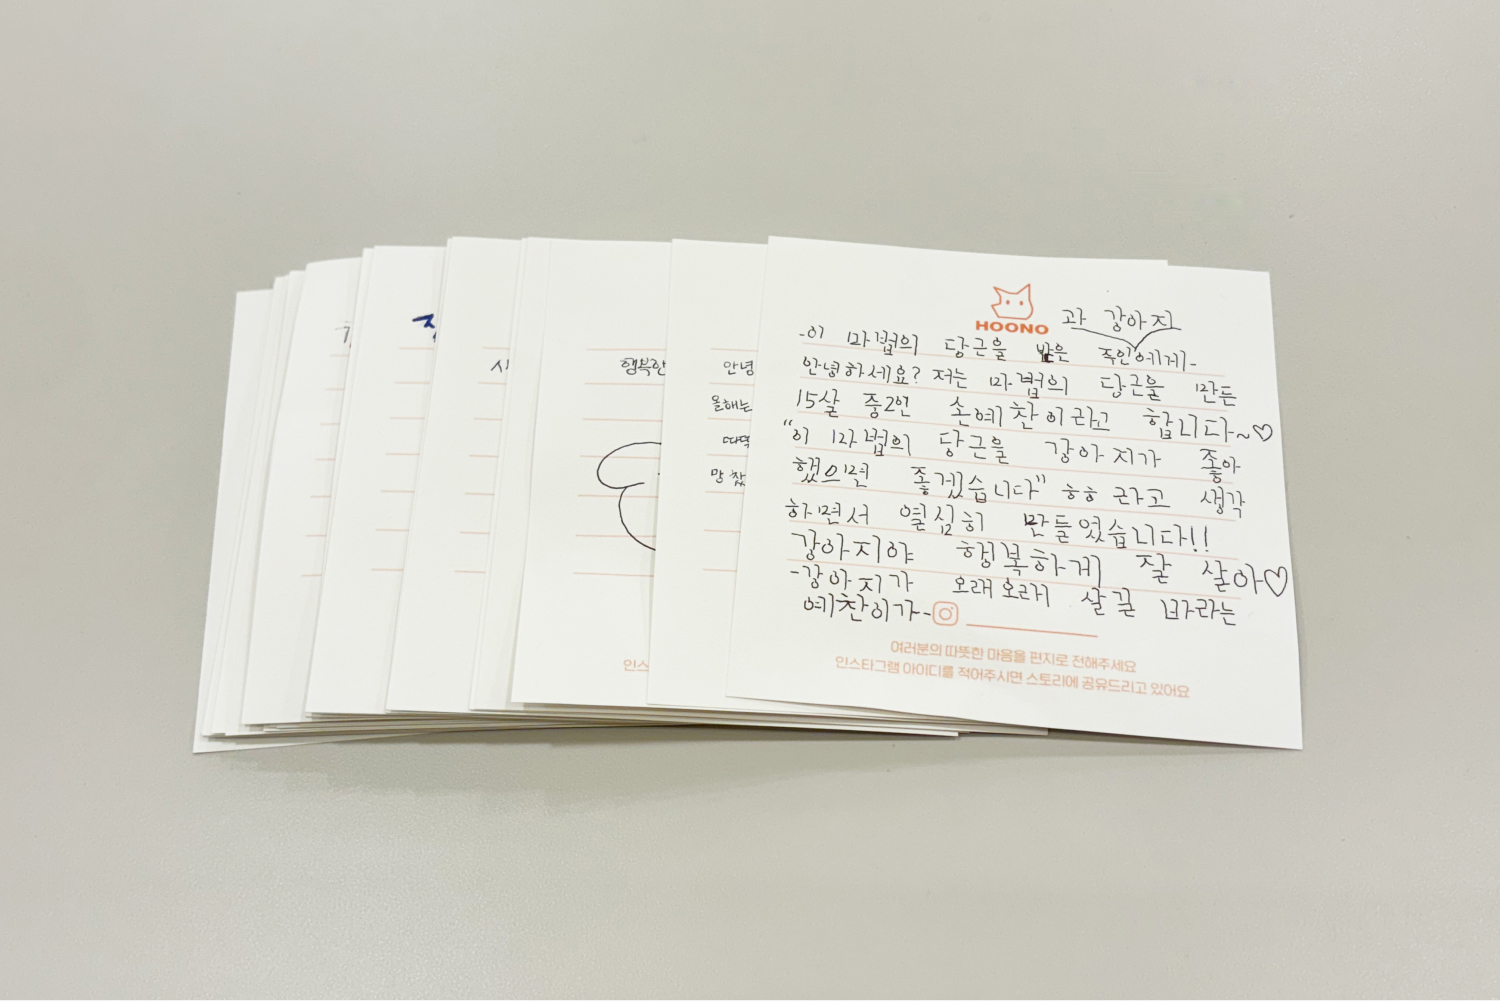 HOONO
과 강아지
-이 마법의 당근을 받은 주인에게-
안녕하세요? 저는 마법의 당근을 만든
15살 중2인 손예찬이라고 합니다~♡
"이 마법의 당근을 강아지가 좋아
했으면 좋겠습니다" ㅎㅎ 라고 생각
하면서 열심히 만들었습니다!!
강아지야 행복하게 잘 살아♡
-강아지가 오래오래 살길 바라는
예찬이가-
여러분의 따뜻한 마음을 편지로 전해주세요
인스타그램 아이디를 적어주시면 스토리에 공유드리고 있어요
안녕
올해는
따뜻
망
행복한
인스